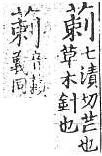 莿
七漬切芒也
草木針也
義同